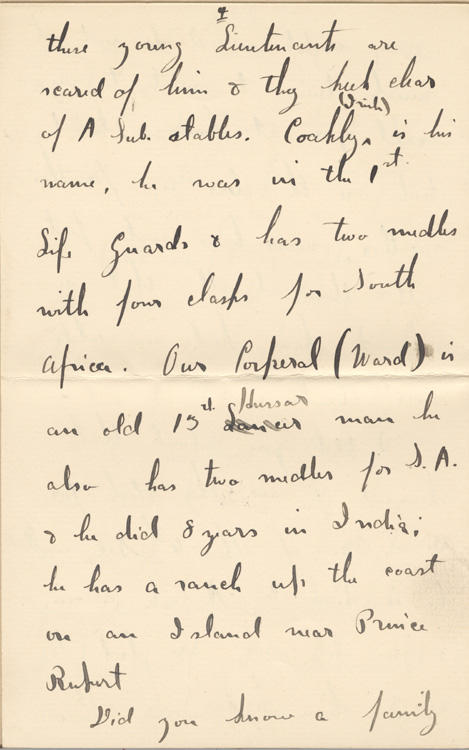 4
these young Lieutenants are
scared of him & they keep clear
(Irish)
of A Sub. stables. Coakly, is his
name, he was in the 1st.
Life Guards & has two medles
with four clasps for South
Africa. Our Corperal (Ward) is
Hussar
an old 13rd. Lancer man he
also has two medles for S.A.
& he did 8 years in India;
he has a ranch up the coast
on an Island near Prince
Rupert
Did you know a family